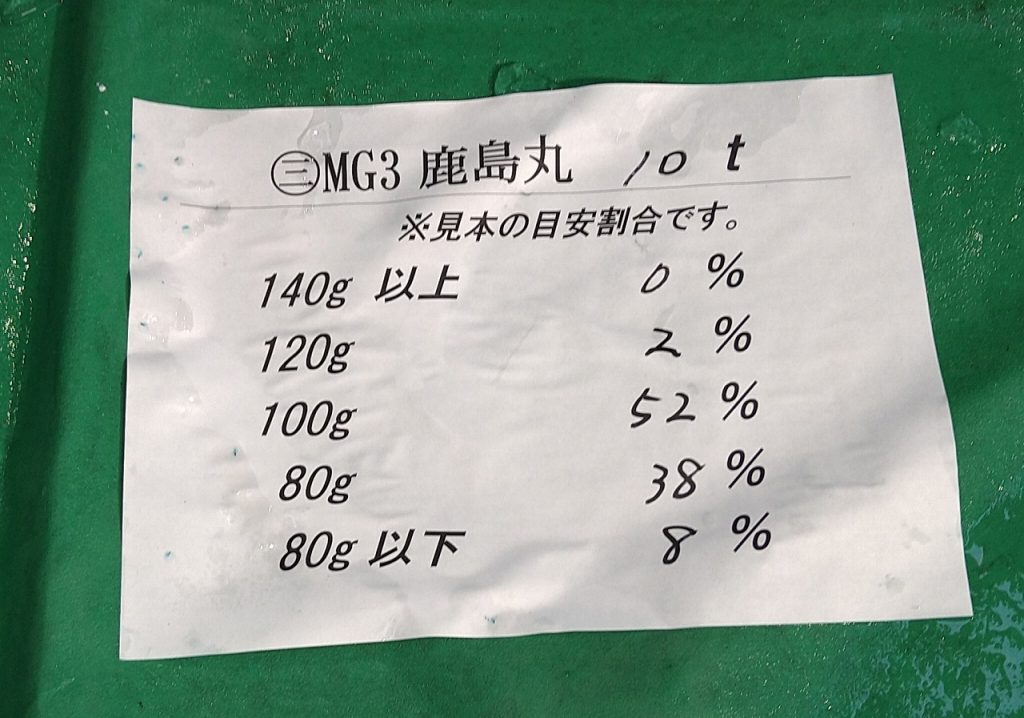 ㊂MG3 鹿島丸 10 t
※見本の目安割合です。
140g 以上 0 %
120g 2 %
100g 52 %
80g 38 %
80g 以下 8 %